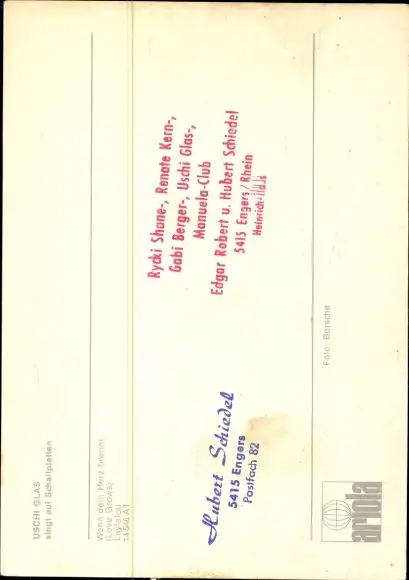 USCHI GLAS
singt auf Schallplatten
Wenn dein Herz brennt
(Love Grows)
Laylalou
14 646 AT
Rycki Shane-, Renate Kern-,
Gabi Berger-, Uschi Glas-,
Manuela-Club
Edgar Robert u. Hubert Schiedel
5415 Engers/Rhein
Heinrich-
Hubert Schiedel
5415 Engers
Postfach 82
Foto: Borsche
ariola